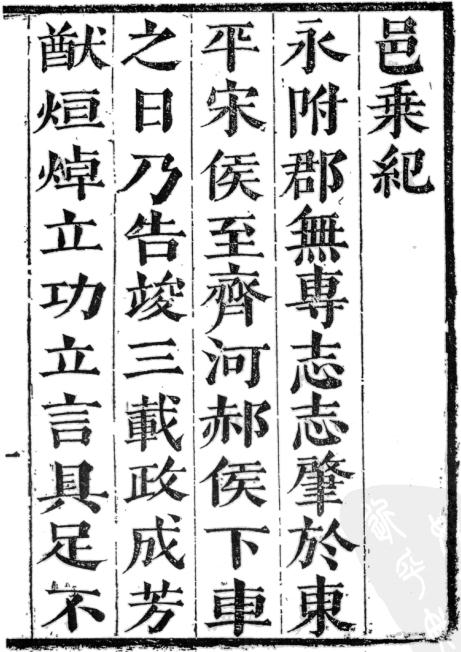 邑乗紀
永附郡無專志志肇於東
平宋侯至齊河郝侯下車
之日乃告竣三載政成芳
猷烜焯立功立言具足不
一